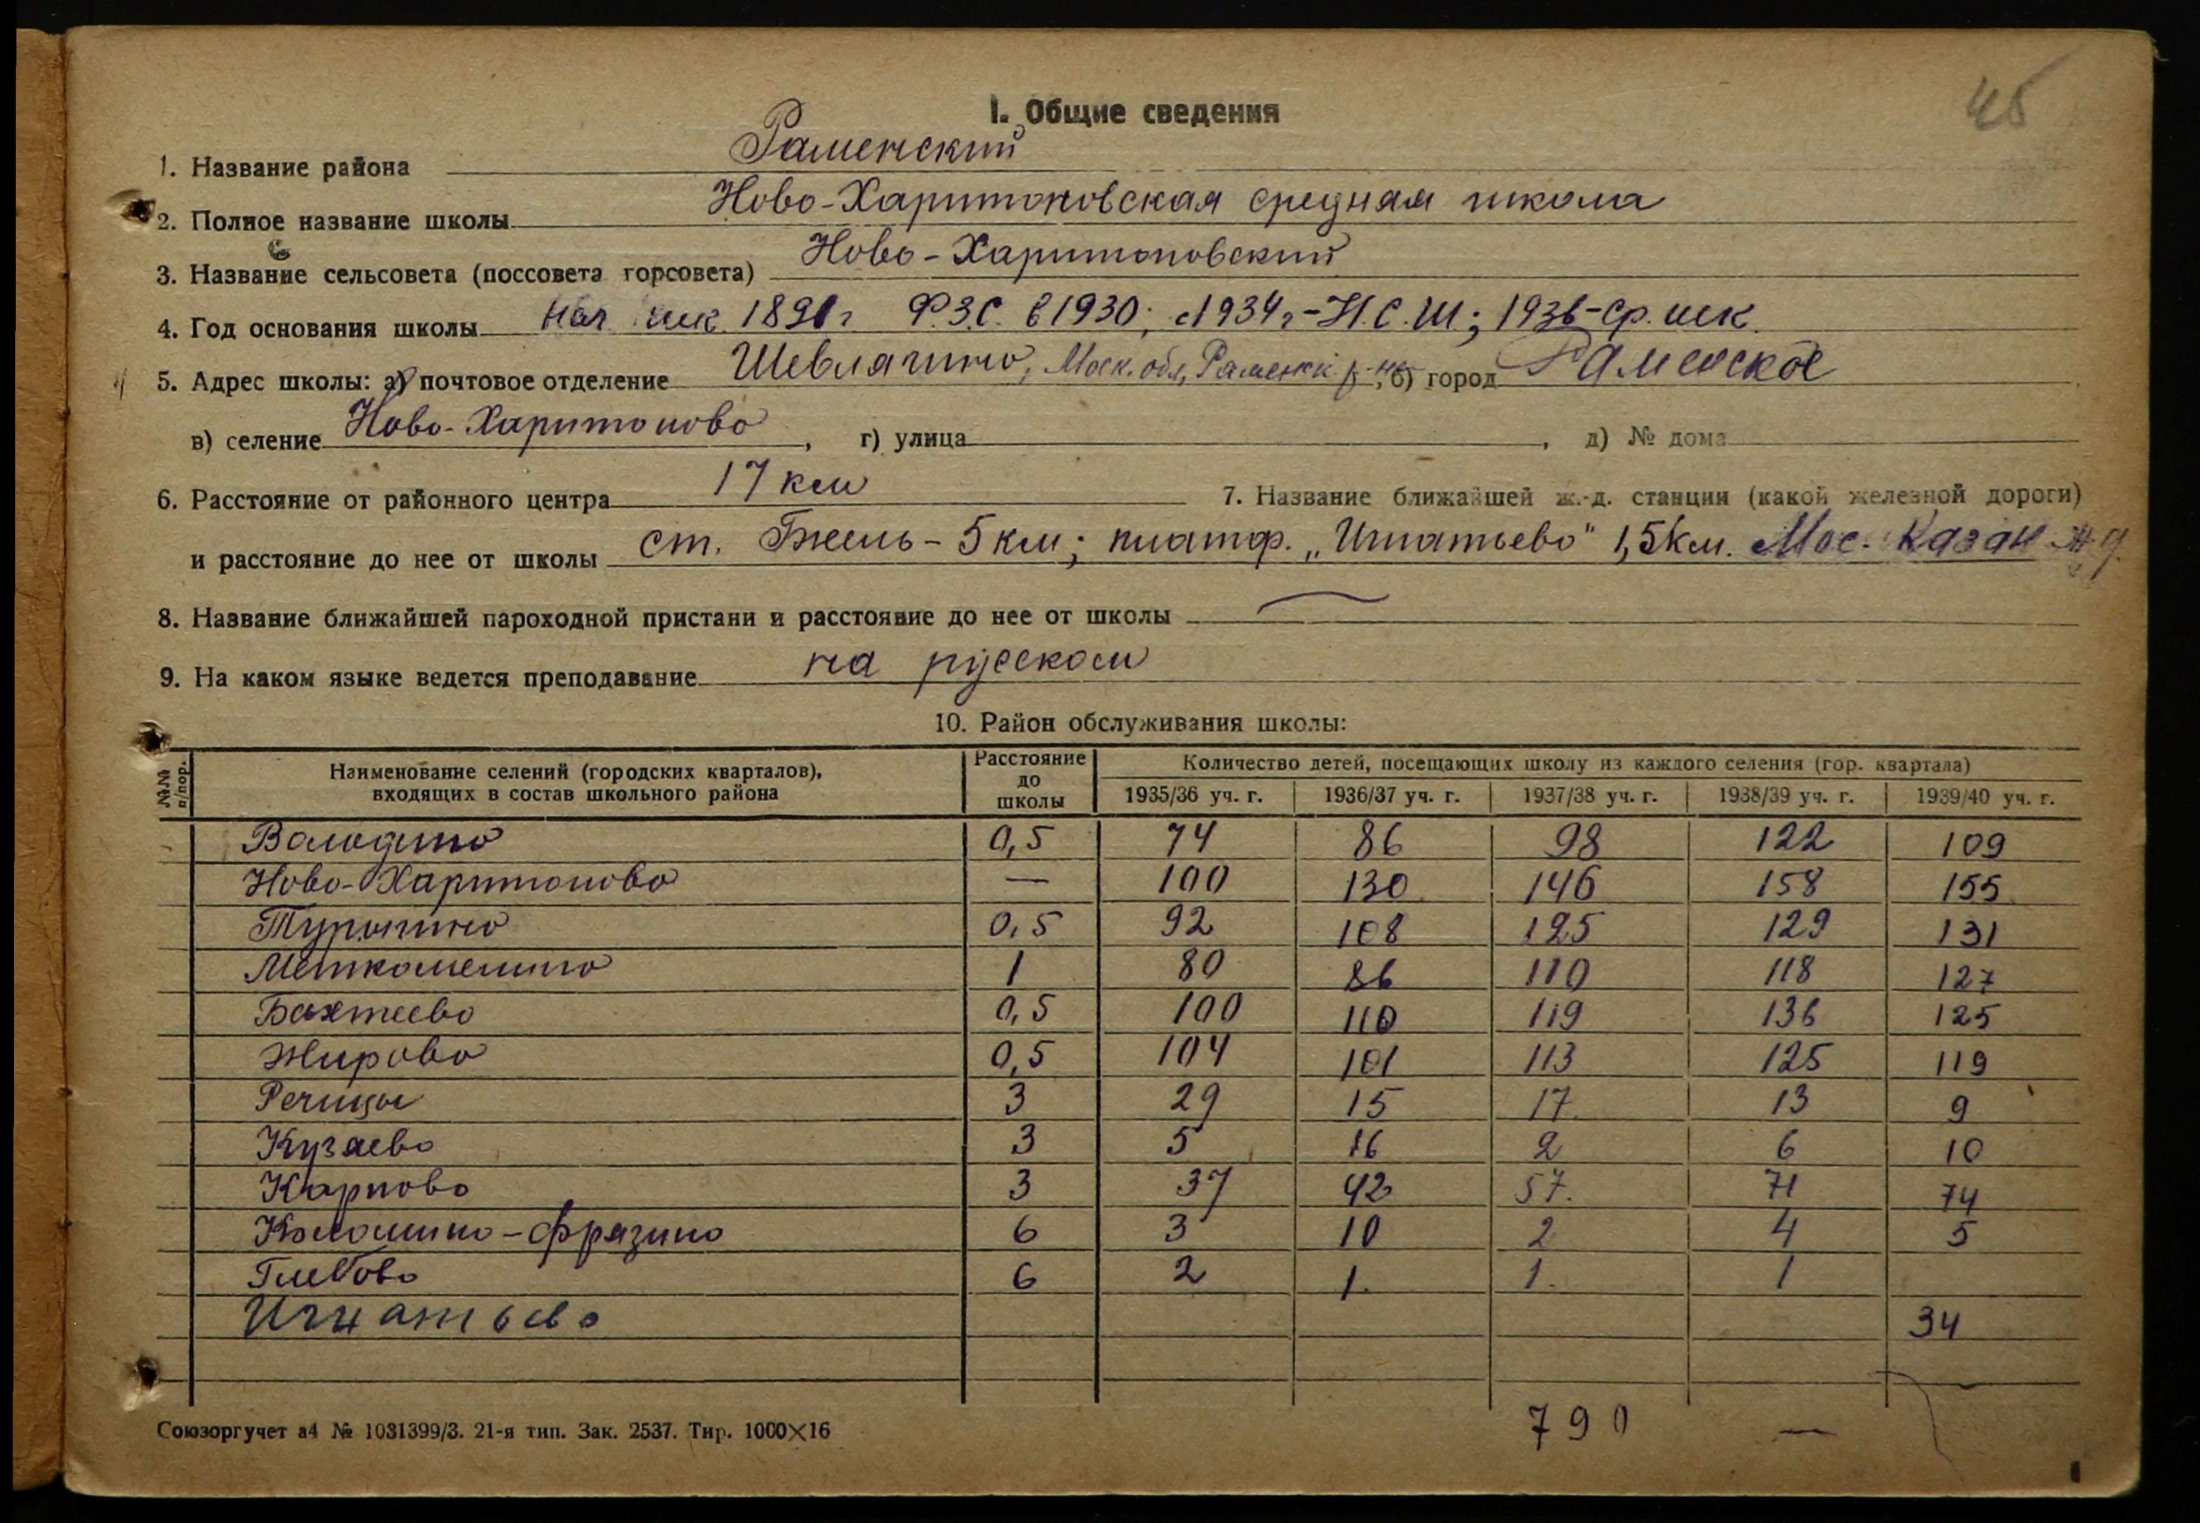 45
I. Общие сведения
1. Название района Раменский
2. Полное название школы Ново-Харитоновская средняя школа
3. Название сельсовета (поссовета горсовета) Ново-Харитоновский
4. Год основания школы Нач шк. 1891г Ф.З.С. в 1930; с 1934г-Н.С.Ш; 1936-ср. шк.
5. Адрес школы: а) почтовое отделение Шевлягино, Моск. обл, Раменск р-на, б) город Раменское
в) селение Ново-Харитоново, г) улица , д) № дома
6. Расстояние от районного центра 17 км 7. Название ближайшей ж.-д. станции (какой железной дороги)
и расстояние до нее от школы ст. Гжель - 5 км; платф. „Игнатьево" 1,5 км. Мос. Казан ж д.
8. Название ближайшей пароходной пристани и расстояние до нее от школы —
9. На каком языке ведется преподавание на русском
10. Район обслуживания школы:
№№ п/пор. Наименование селений (городских кварталов), входящих в состав школьного района Расстояние до школы Количество детей, посещающих школу из каждого селения (гор. квартала)
1935/36 уч. г. 1936/37 уч. г. 1937/38 уч. г. 1938/39 уч. г. 1939/40 уч. г.
Володино 0,5 74 86 98 122 109
Ново-Харитоново — 100 130 146 158 155
Турыгино 0,5 92 108 125 129 131
Меткомелино 1 80 86 110 118 127
Бахтеево 0,5 100 110 119 136 125
Жирово 0,5 104 101 113 125 119
Речицы 3 29 15 17 13 9
Кузяево 3 5 16 2 6 10
Карпово 3 37 42 57 71 74
Коломино-Фрязино 6 3 10 2 4 5
Глебово 6 2 1 1 1
Игнатьево 34
790 —
Союзоргучет а4 № 1031399/3. 21-я тип. Зак. 2537. Тир. 1000×16